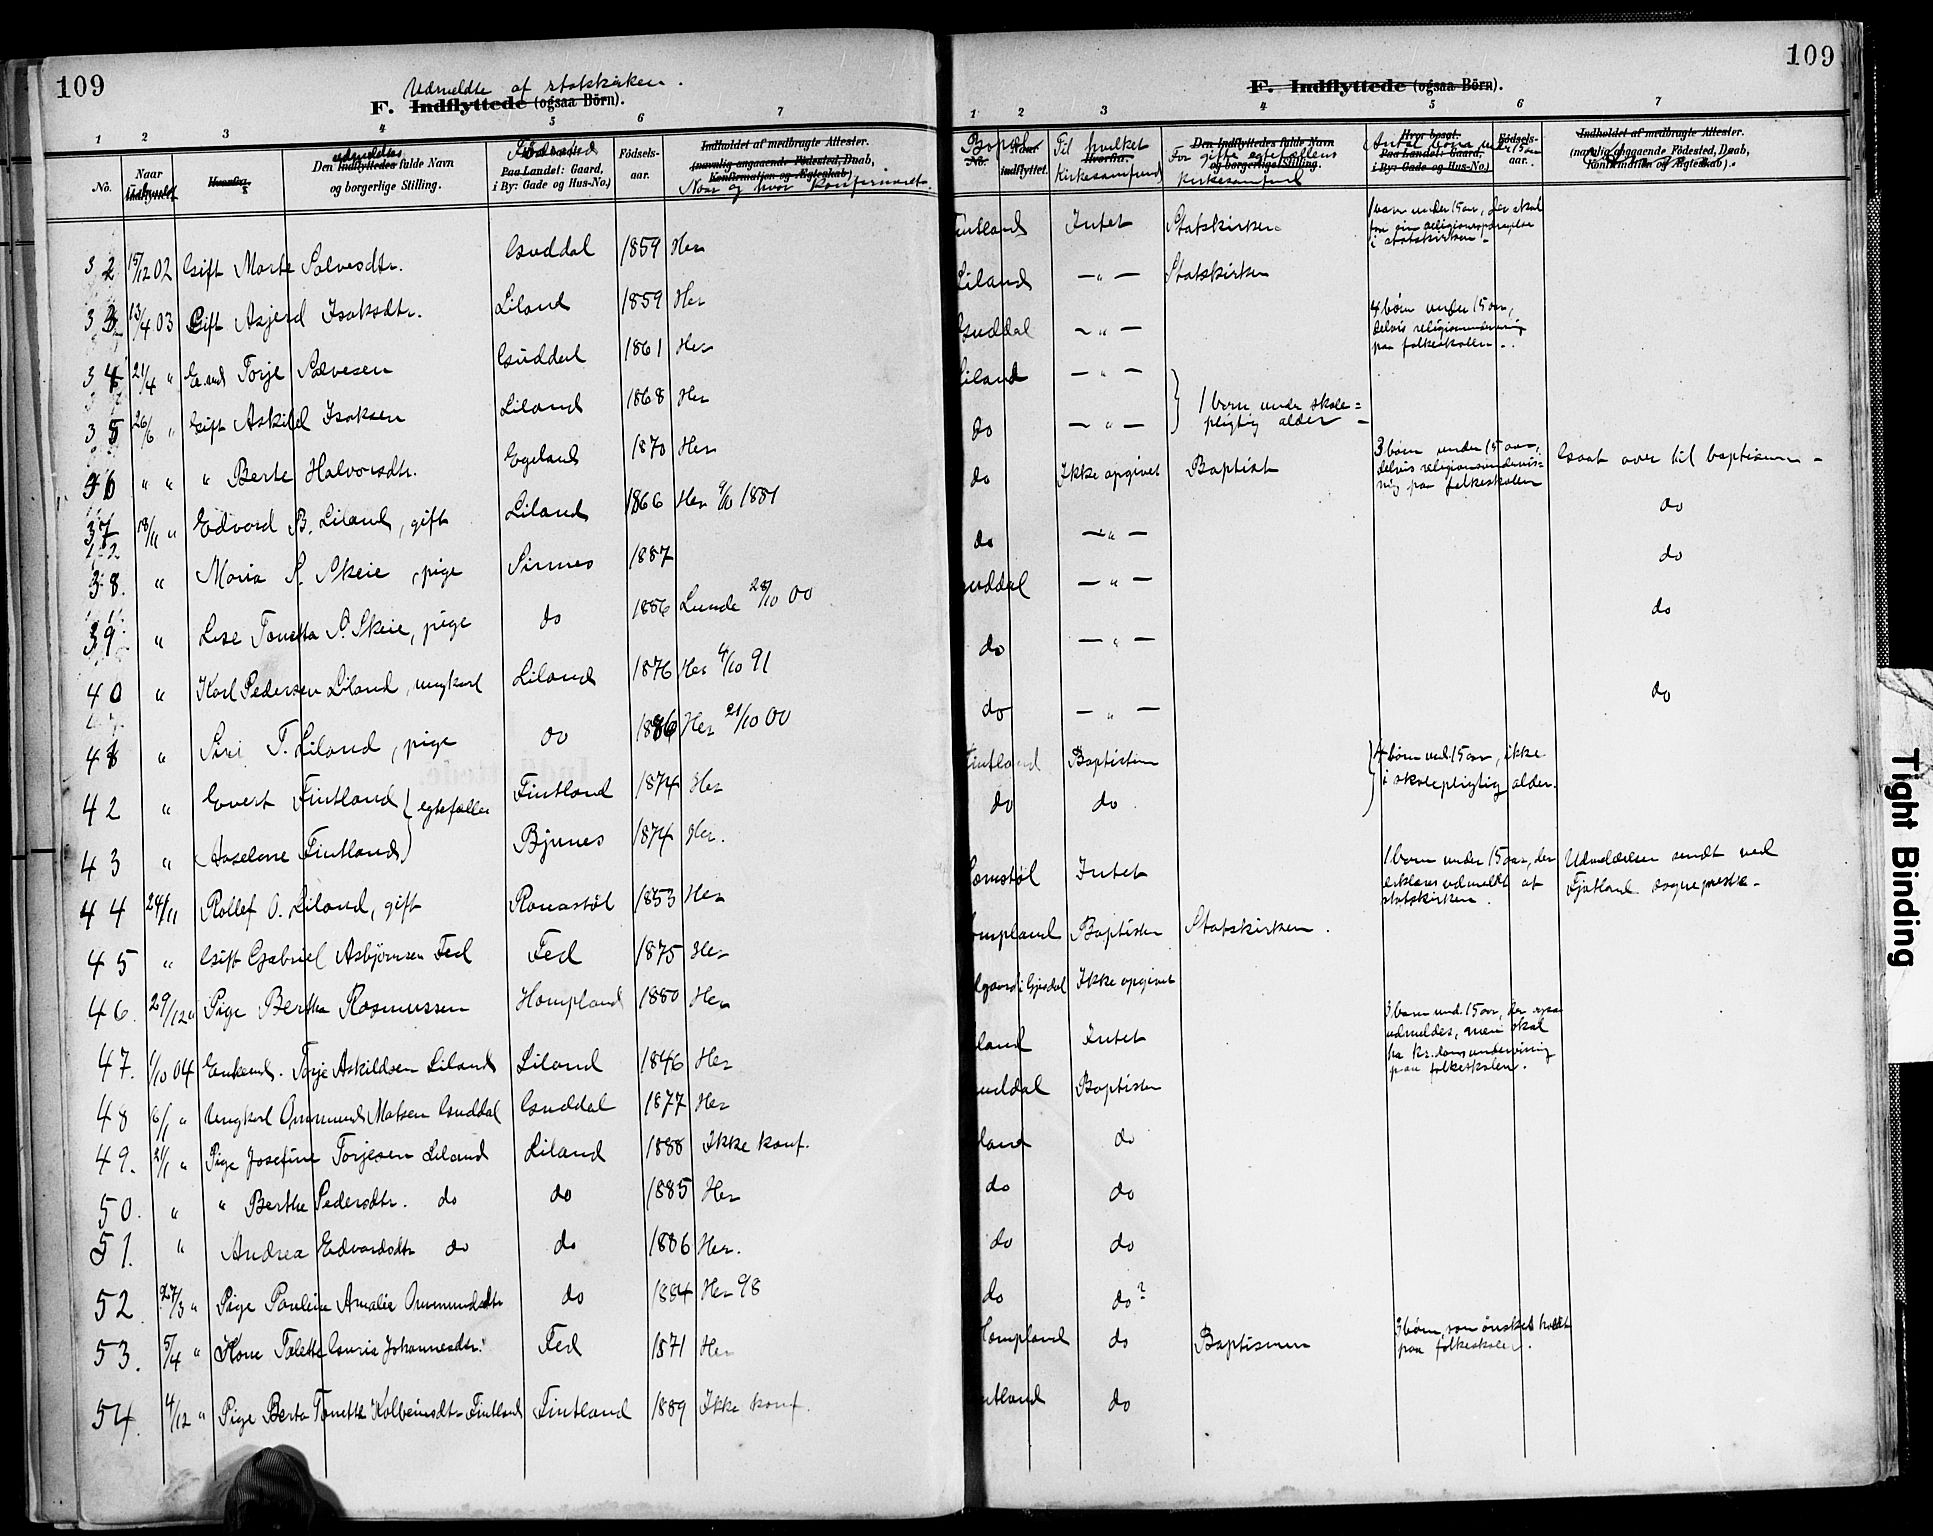 109
Udmeldte af statskirken.
F. Indflyttede (ogsaa Börn).
1 2 3 4 5 6 7
No.
Naar
Hvorfra.
udmeldtes
Den Indflyttedes fulde Navn
og borgerlige Stilling.
Paa Landet: Gaard,
i By: Gade og Hus-No.)
Födsels-
aar.
Indholdet af medbragte Attester.
(navnlig angaaende Födested, Daab,
Konfirmation og Ægteskab)
Naar og hvor konfirmeret.
32 15/12 02 Gift Marte Salvesdtr. Guddal 1859 Her
33 13/4 03 Gift Asjerd Isaksdtr. Liland 1859 Her
34 21/4 " Torje Salvesen Guddal 1861 Her
35 26/6 " Gift Askild Isaksen Liland 1868 Her
36 " " " Berte Halvorsdtr. Egeland 1870 Her
37 18/11 " Edvard B. Liland, gift Liland 1866 Her 9/10 1881
38. " Maria S. Skeie, pige Sirnes 1887
39. " Lise Tonetta S. Skeie, pige do 1886 Lunde 28/10 00
40 " Karl Pedersen Liland, ungkarl Liland 1876 Her 4/10 91
41 " Siri T. Liland, pige do 1886 Her 21/10 00
42 " Evert Fintland (egtefæller Fintland 1874 Her
43 " Aaselene Fintland) Bjunes 1874 Her.
44 24/11 Rollef O. Liland, gift Ronastöl 1853 Her
45 " Gift Gabriel Asbjörnsen Fed Fed 1875 Her
46. 29/12 " Pige Bertha Rasmussen Hompland 1880 Her
47. 1/10 04 Enkem. Torje Askildsen Liland Liland 1846 Her
48 6/1 " Ungkarl Ommund Matsen Guddal Guddal 1877 Her
49. 21/1 " Pige Josefine Torjesen Liland Liland 1888 Ikke konf.
50. " " Berthe Pedersdtr. do do 1885 Her
51. " Andrea Edvardsdtr do do 1886 Her.
52. 27/3 " Pige Pauline Amalie Ommundsdtr do 1884 Her 98
53. 5/4 " Kone Tolette Guria Johannesdtr. Fed 1871 Her
54. 4/12 " Pige Berta Tonette Kolbeinsdtr Fintland Fintland 1889 Ikke konf.
109
F. Indflyttede (ogsaa Börn).
1 2 3 4 5 6 7
Bopæl
No.
indflyttet.
Til hvilket
Hvorfra.
Kirkesamfund
Den Indflyttedes fulde Navn
For gifte egtefællens
og borgerlige Stilling.
kirkesamfund
Hvor bosat.
Antal börn under 15 aar
Paa Landet: Gaard,
i By: Gade og Hus-No.)
Födsels-
aar.
Indholdet af medbragte Attester.
(navnlig angaaende Födested, Daab,
Konfirmation og Ægteskab).
Fintland Intet Statskirken 1 barn under 15 aar, der skal
i statskirken.
Liland — " — Statskirken
Guddal — " — 4 börn under 15 aar,
delvis religionsundervisning
paa folkeskolen.
Liland — " —
do — " — } 1 barn under skole=
pligtig alder
do Ikke opgivet Baptist 3 börn under 15 aar,
delvis religionsundervis=
ning paa folkeskolen
Gaat over til baptismen
do — " — do
Guddal — " — do
do — " — do
do — " — do
Fintland Baptisten } 4 börn und. 15 aar, ikke
i skolepligtig alder.
do do
Intet 1 barn under 15 aar, der
erklæres udmeldt af
statskirken.
Udmeldelsen sendt ved
Fjotland sogneprest
ompland Baptisten Statskirken.
lgaard i Gjesdal Ikke opgivet
land Intet 3 barn und. 15 aar, der ogsaa
udmeldes, men skal
ha kr.domsundervisning
paa folkeskolen.
uddal Baptisten
land do
do do
do do
do do?
Hompland do Baptismen 3 börn, som önskes holdt
paa folkeskole.
ntland do
Tight Binding